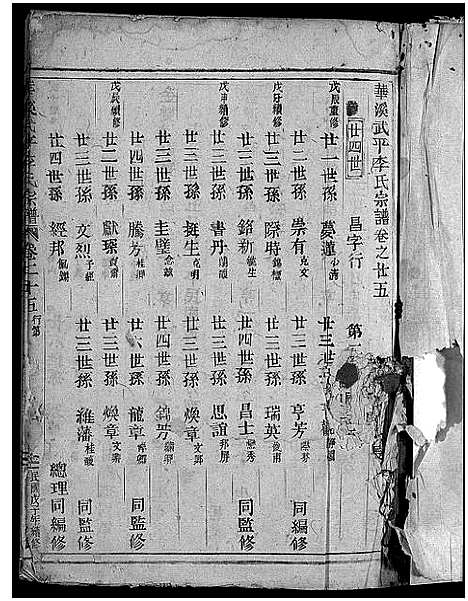 華溪武平李氏宗譜卷之廿五
廿四世 昌字行 第一
戊辰重修 廿一世孫 夢蓮 小溝 廿三世
廿二世孫 崇有 克文 廿三世孫 亨芳 同編修
戊牙續修 廿三世孫 際時 錦標 廿三世孫 瑞英
廿四世孫 銘新 廿四世孫 昌士 懋秀 同監修
戊申續修 廿二世孫 書丹 廿三世孫 思誼 邦屏
廿三世孫 挺生 克明 廿三世孫 煥章 文彩
廿三世孫 圭璧 念誠 廿四世孫 錦芳
廿四世孫 騰芳 廿六世孫 龍章 同監修
戊辰續修 廿二世孫 獻琛 廿三世孫 煥章 文彩
廿三世孫 文烈 子經 廿三世孫 維藩 桂馥 同監修
廿四世孫 經邦 總理同編修
華溪武平李氏宗譜 卷二十五 行第 民國戊子年續修